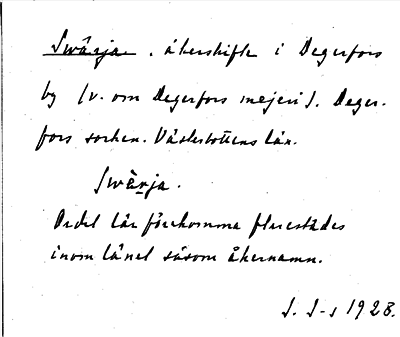 Swärja. åkerskifte i Degerfors
by (v. om Degerfors mejeri). Deger-
fors socken. Västerbottens län.
swärja.
Ordet lär förekomma flerstädes
inom länet såsom åkernamn.
J. J-s 1928.